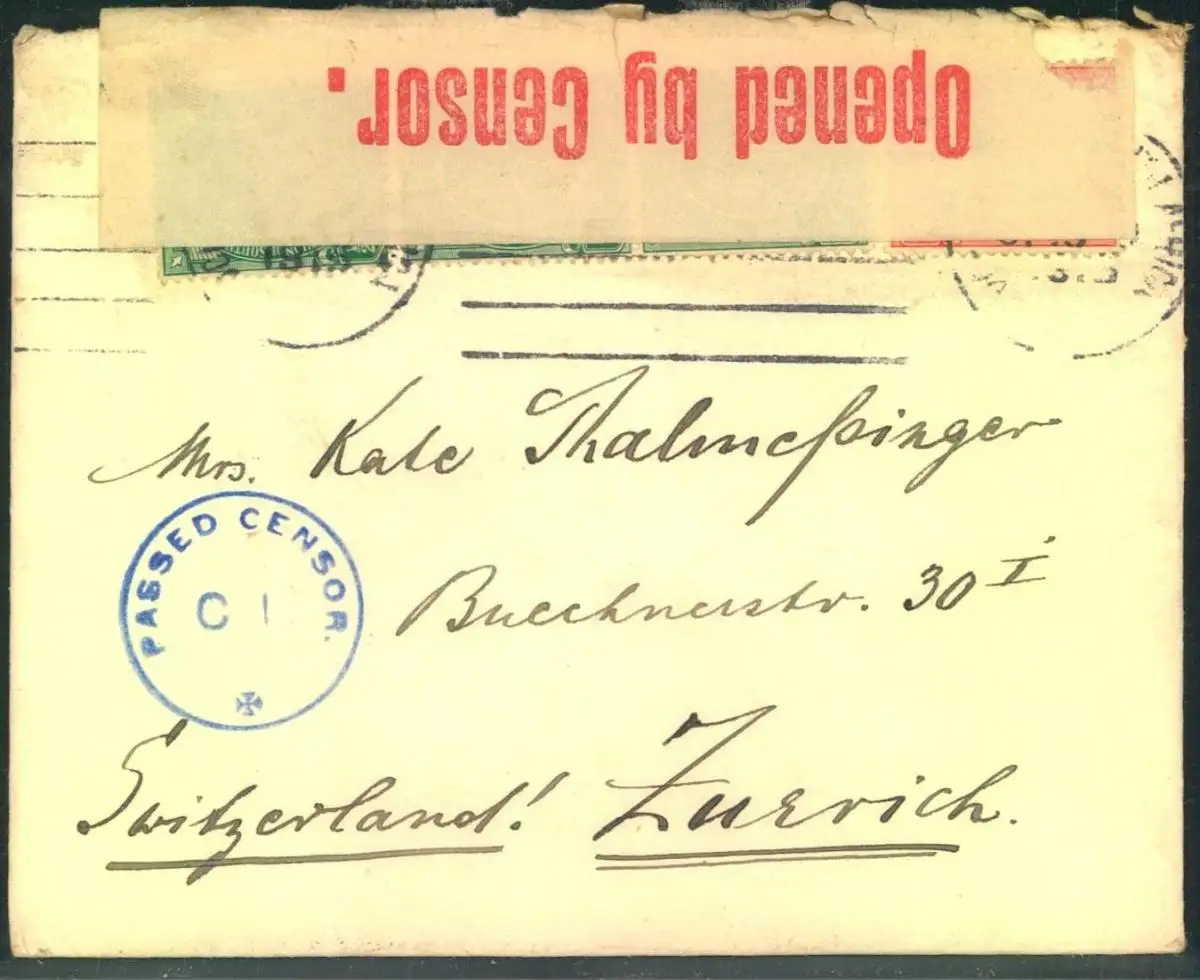 Opened by Censor.
Mrs. Kate Thalmeßinger
PASSED CENSOR.
C 1
Buechnerstr. 30 I
Switzerland! Zuerich.